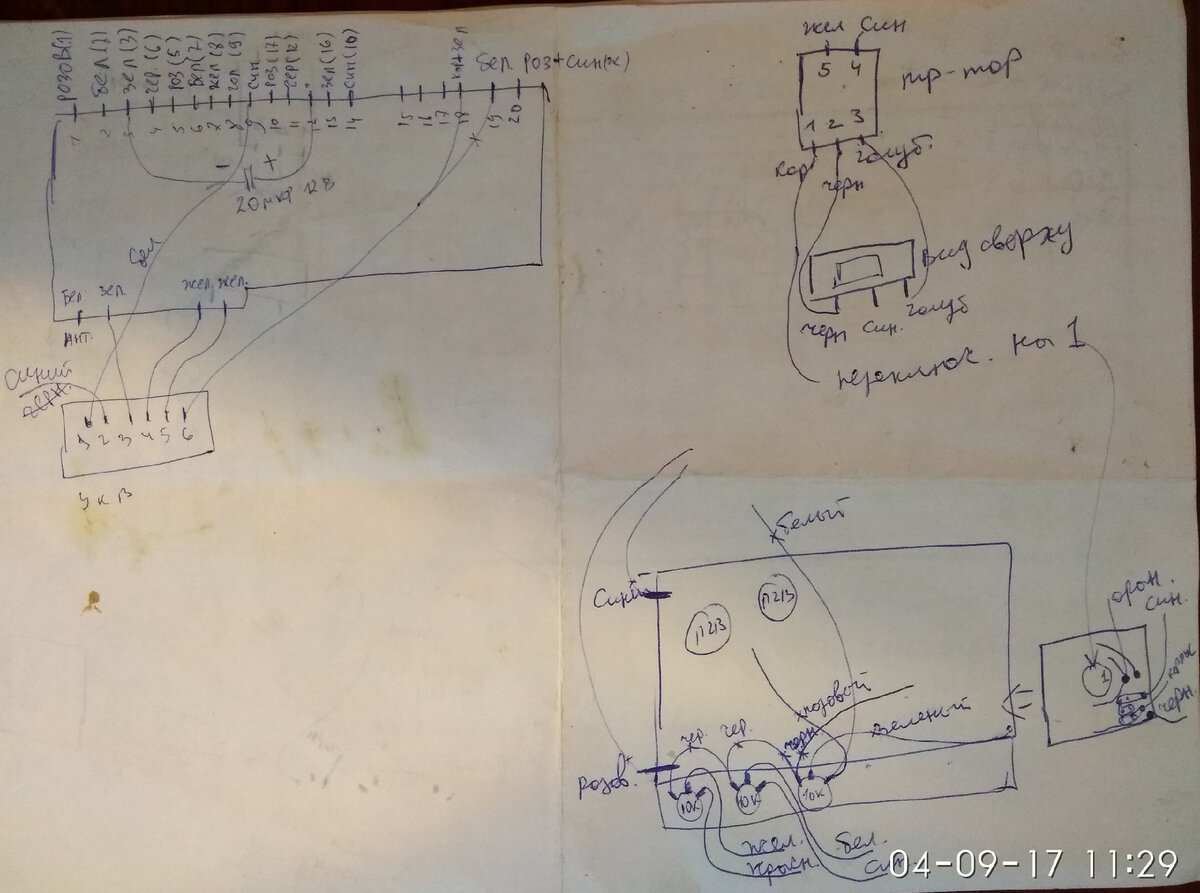 РОЗОВ(1)
БЕЛ(7)
ЗЕЛ(3)
ЧЕР(6)
РОЗ(5)
БЕЛ(7)
ЖЕЛ(8)
ГОЛ(9)
СИН
РОЗ(17)
ЧЕР(12)
ЗЕЛ(16)
СИН(10)
бел. роз+син(ж)
1 2 3 4 5 6 7 8 9 10 11 12 13 14 15 16 17 18 19 20
- +
20 мкф 12 В
бел
Бел зел. жел. жел.
АНТ.
синий
черн.
1 2 3 4 5 6
УКВ
жел син
5 4
тр-тор
1 2 3
кор голуб.
черн
вид сверху
черн син. голуб
переключ. на 1
белый
синий
П213
П213
розовый
зеленый
чер. чер. черн
розов.
10К 10К 10К
жел. бел.
красн. син.
син.
1
черн.
04-09-17 11:29